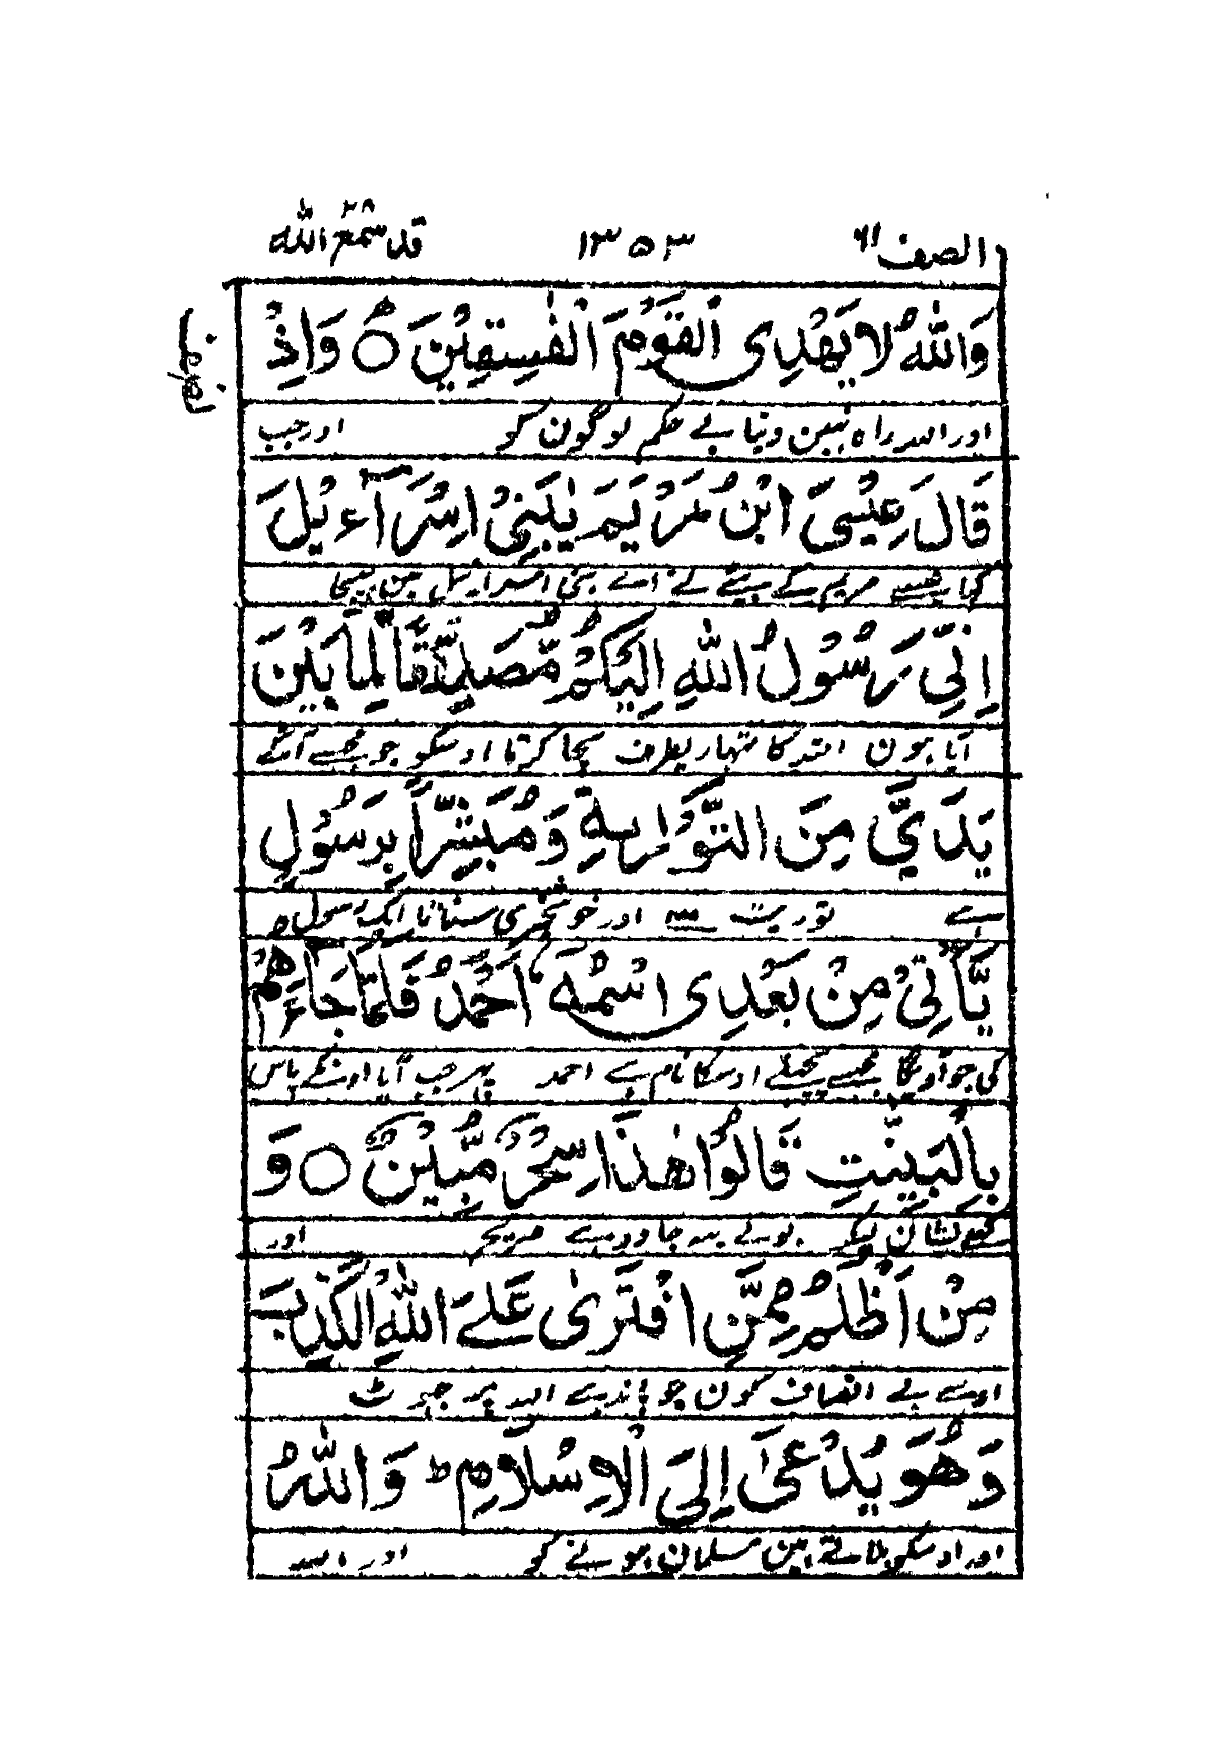 الصف ٦١ ١٣٥٣ قد سمع الله ٢٨
وَاللّٰهُ لَا يَهْدِى الْقَوْمَ الْفٰسِقِيْنَ ○ وَاِذْ
اور اللہ راہ نہین دیتا بے حکم لوگون کو اور جب
قَالَ عِيْسَى ابْنُ مَرْيَمَ يٰبَنِىْ اِسْرَآءِيْلَ
کہا عیسے مریم کے بیٹے نے اے بنی اسرائیل مین بھیجا
اِنِّىْ رَسُوْلُ اللّٰهِ اِلَيْكُمْ مُّصَدِّقًا لِّمَا بَيْنَ
آیا ہون اللہ کا تمہاریطرف سچا کرتا اوسکو جو مجھسے آگے
يَدَيَّ مِنَ التَّوْرٰىةِ وَمُبَشِّرًا بِرَسُوْلٍ
ہے توریت اور خوشخبری سناتا ایک رسول
يَّاْتِىْ مِنْ بَعْدِى اسْمُهٗٓ اَحْمَدُ فَلَمَّا جَآءَهُمْ
کی جو آویگا مجھسے پیچھے اوسکا نام ہے احمد پھر جب آیا اونکے پاس
بِالْبَيِّنٰتِ قَالُوْا هٰذَا سِحْرٌ مُّبِيْنٌ ○ وَ
نشان لیکر بولے یہ جادو ہے صریح اور
مَنْ اَظْلَمُ مِمَّنِ افْتَرٰى عَلَے اللّٰهِ الْكَذِبَ
اوسسے بے انصاف کون جو باندہے اللہ پر جھوٹ
وَهُوَ يُدْعٰٓى اِلَى الْاِسْلَامِ ط وَاللّٰهُ
اور اوسکو بلاتے ہین مسلمان ہونے کو اور اللہ